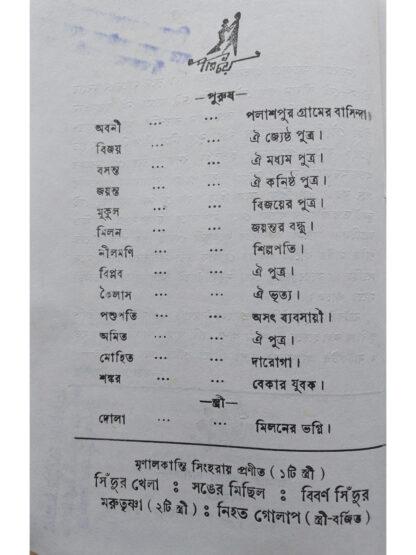 পরিচয়
—পুরুষ—
অবনী ... ... পলাশপুর গ্রামের বাসিন্দা।
বিজয় ... ... ঐ জ্যেষ্ঠ পুত্র।
বসন্ত ... ... ঐ মধ্যম পুত্র।
জয়ন্ত ... ... ঐ কনিষ্ঠ পুত্র।
মুকুল ... ... বিজয়ের পুত্র।
মিলন ... ... জয়ন্তর বন্ধু।
নীলমণি ... ... শিল্পপতি।
বিপ্লব ... ... ঐ পুত্র।
কৈলাস ... ... ঐ ভৃত্য।
পশুপতি ... ... অসৎ ব্যবসায়ী।
অমিত ... ... ঐ পুত্র।
মোহিত ... ... দারোগা।
শঙ্কর ... ... বেকার যুবক।
—স্ত্রী—
দোলা ... ... মিলনের ভগ্নি।
মৃণালকান্তি সিংহরায় প্রণীত ( ১টি স্ত্রী )
সিঁদুর খেলা : সঙের মিছিল : বিবর্ণ সিঁদুর
মরুতৃষ্ণা ( ২টি স্ত্রী ) : নিহত গোলাপ ( স্ত্রী-বর্জিত )